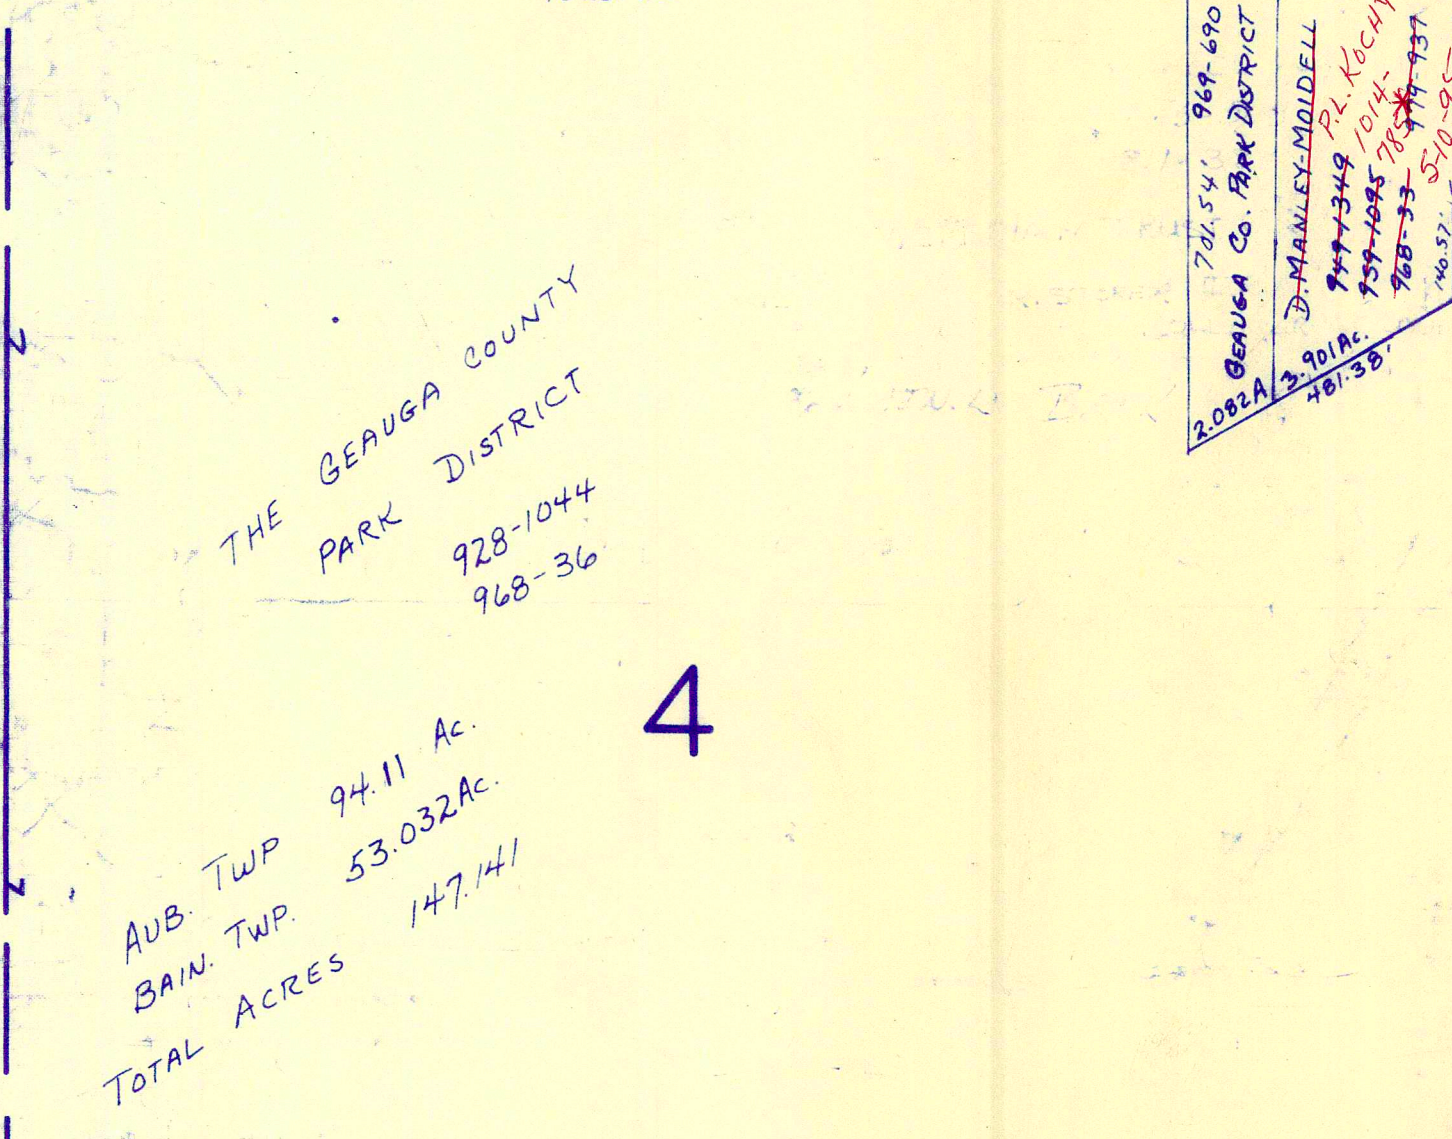 THE GEAUGA COUNTY
PARK DISTRICT
928-1044
968-36
4
AUB. TWP 94.11 Ac.
BAIN. TWP. 53.032 Ac.
TOTAL ACRES 147.141
701.54' 969-690
GEAUGA CO. PARK DISTRICT
2.082A
D. MANLEY-MOIDELL
P.L. KOCHY
949-1349
1014-
959-1095
785
968-33
979-937
5-10-95
140.57'
3.901 Ac.
481.38'